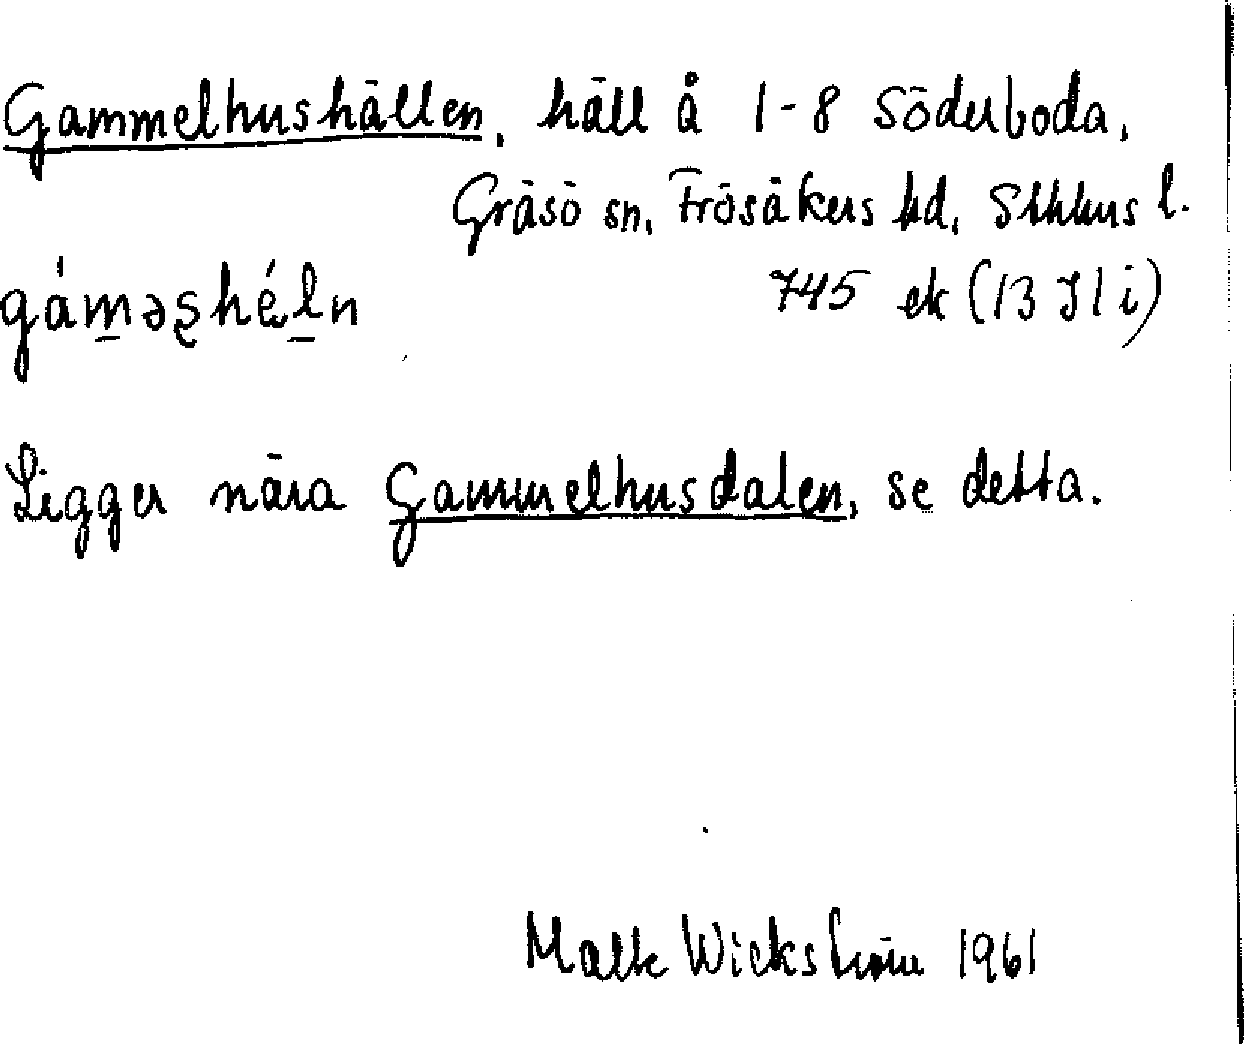 Gammelhushällen, häll å 1-8 Söderboda,
Gräsö sn, Frösåkers hd, Sthlms l.
gáməshéln 745 ek (13 I 1 i)
Ligger nära Gammelhusdalen, se detta.
Malte Wickström 1961